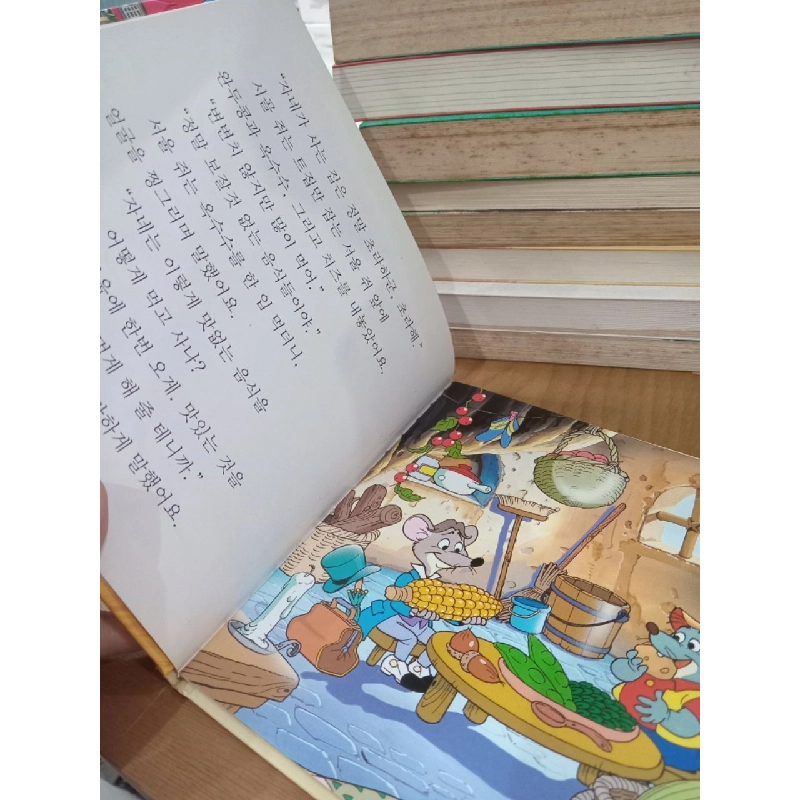 "자네가 사는 집은 정말 초라하군, 초라해."
서울 쥐는 트집만 잡는 서울 쥐 앞에
완두콩과 옥수수, 그리고 치즈를 내놓았어요.
"변변치 않지만 많이 먹어."
"정말 보잘것 없는 음식들이야."
서울 쥐는 옥수수를 한 입 먹더니,
얼굴을 찡그리며 말했어요.
"자네는 이렇게 맛없는 음식을
어떻게 먹고 사나?
에 한번 오게. 맛있는 것을
게 해 줄 테니까."
하게 말했어요.